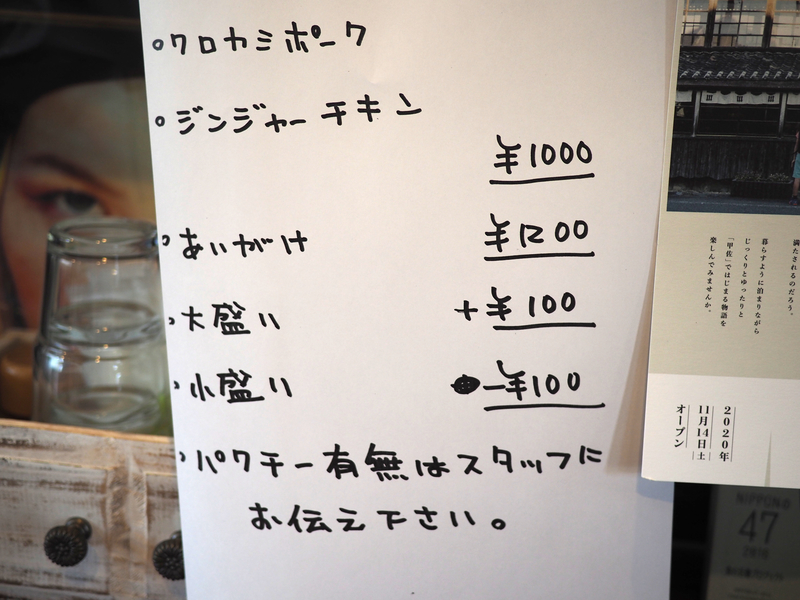 ・クロカミポーク
・ジンジャーチキン
¥1000
・あいがけ ¥1200
・大盛り +¥100
・小盛り -¥100
・パクチー有無はスタッフに
お伝え下さい。
満たされるのだろう。
暮らすように泊まりながら
じっくりとゆったりと
「甲佐」ではじまる物語を
楽しんでみませんか。
2020年
11月14日土
オープン
NIPPONの
47